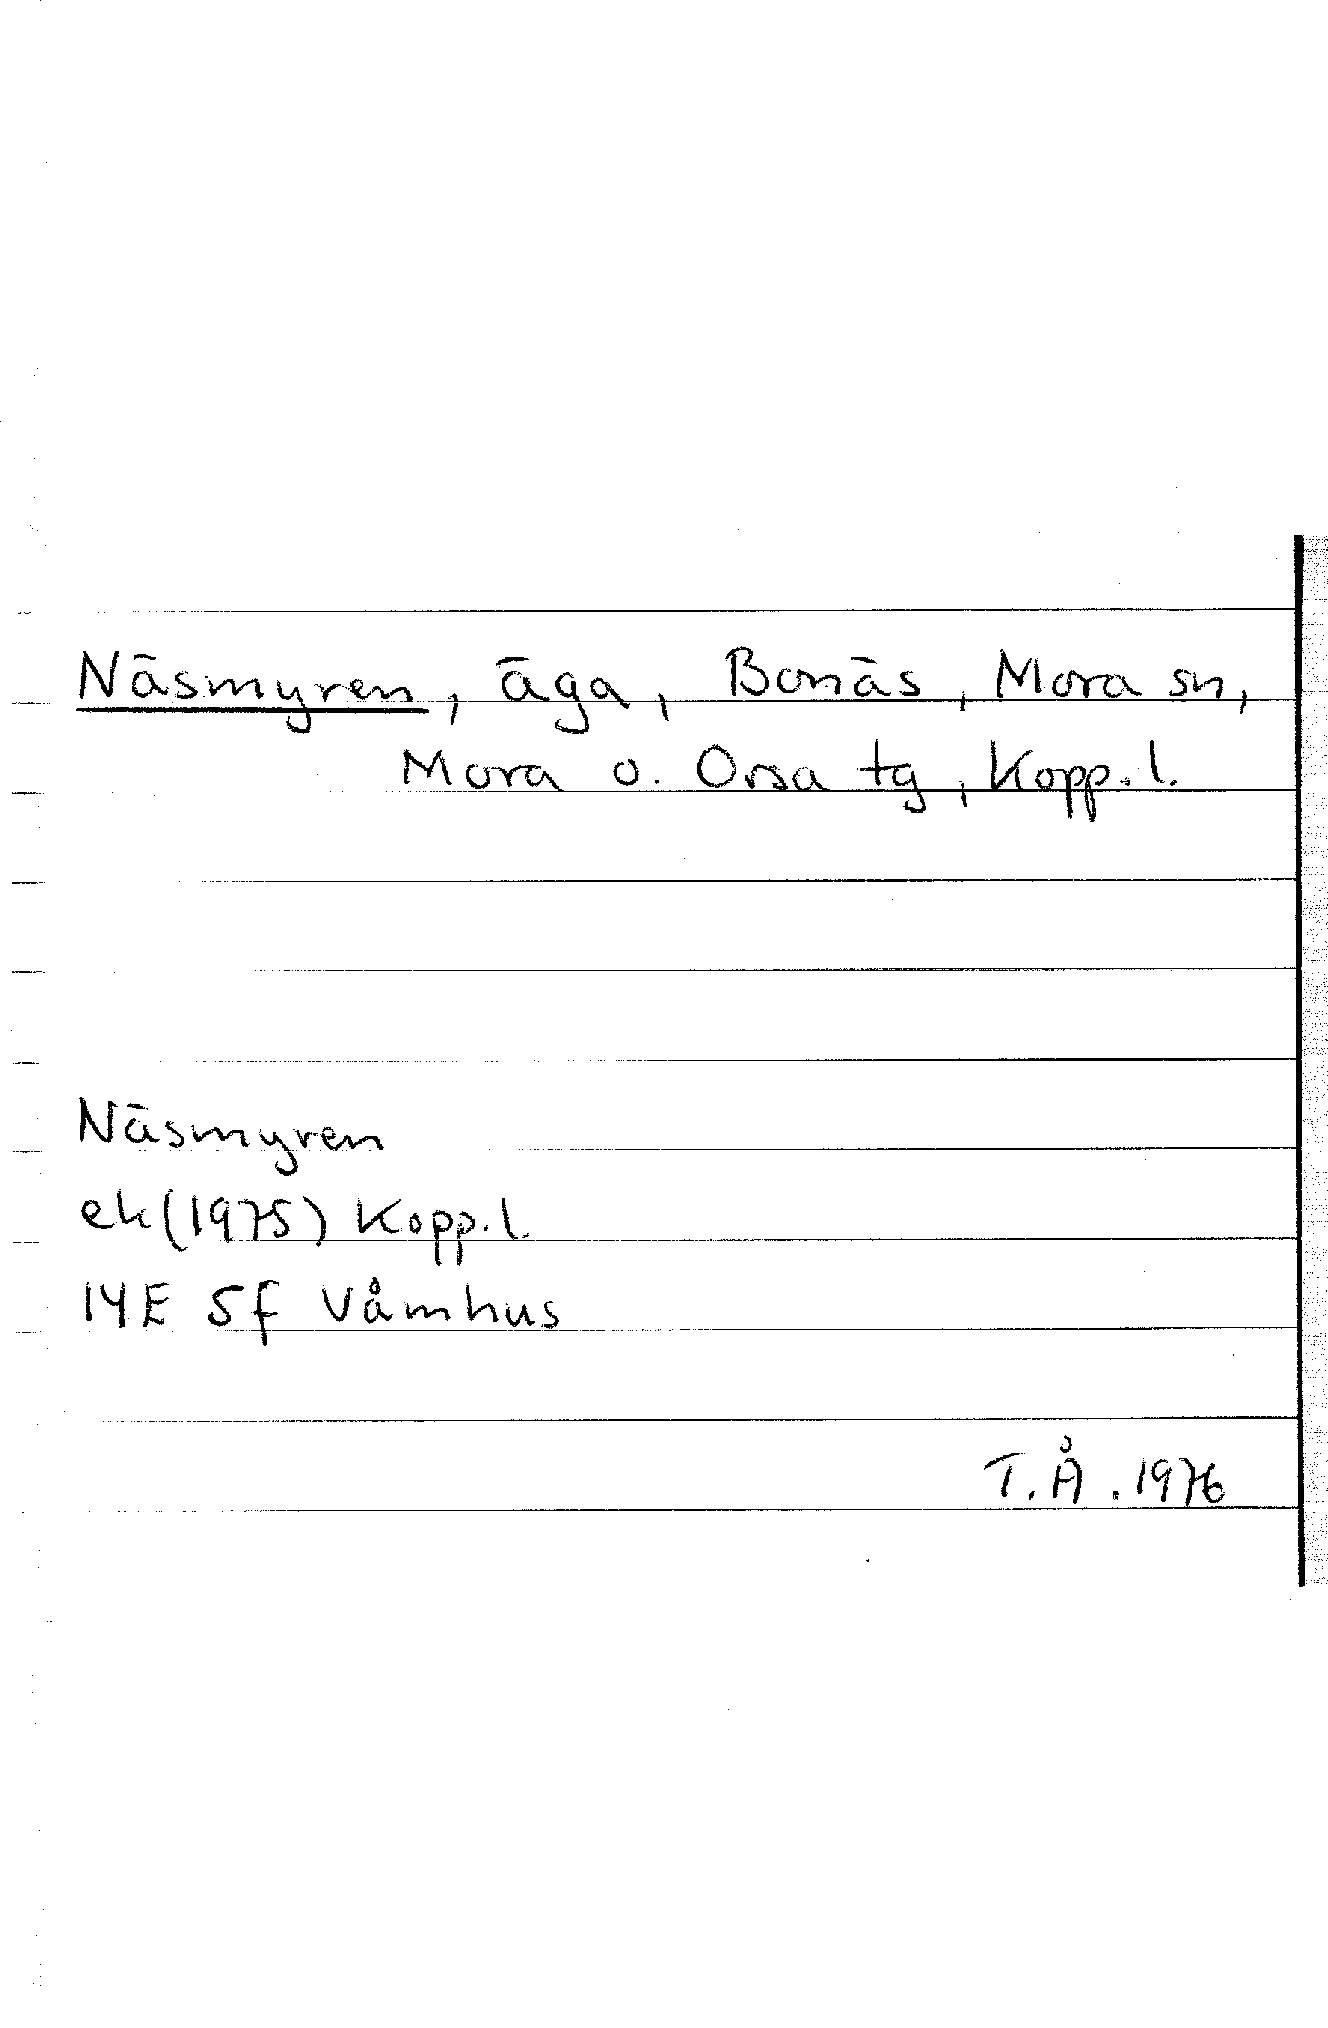 Näsmyren, äga, Bonäs, Mora sn,
Mora o. Orsa tg, Kopp.l.
Näsmyren
ek(1975) Kopp.l.
14E 5f Våmhus
T.Å.1976